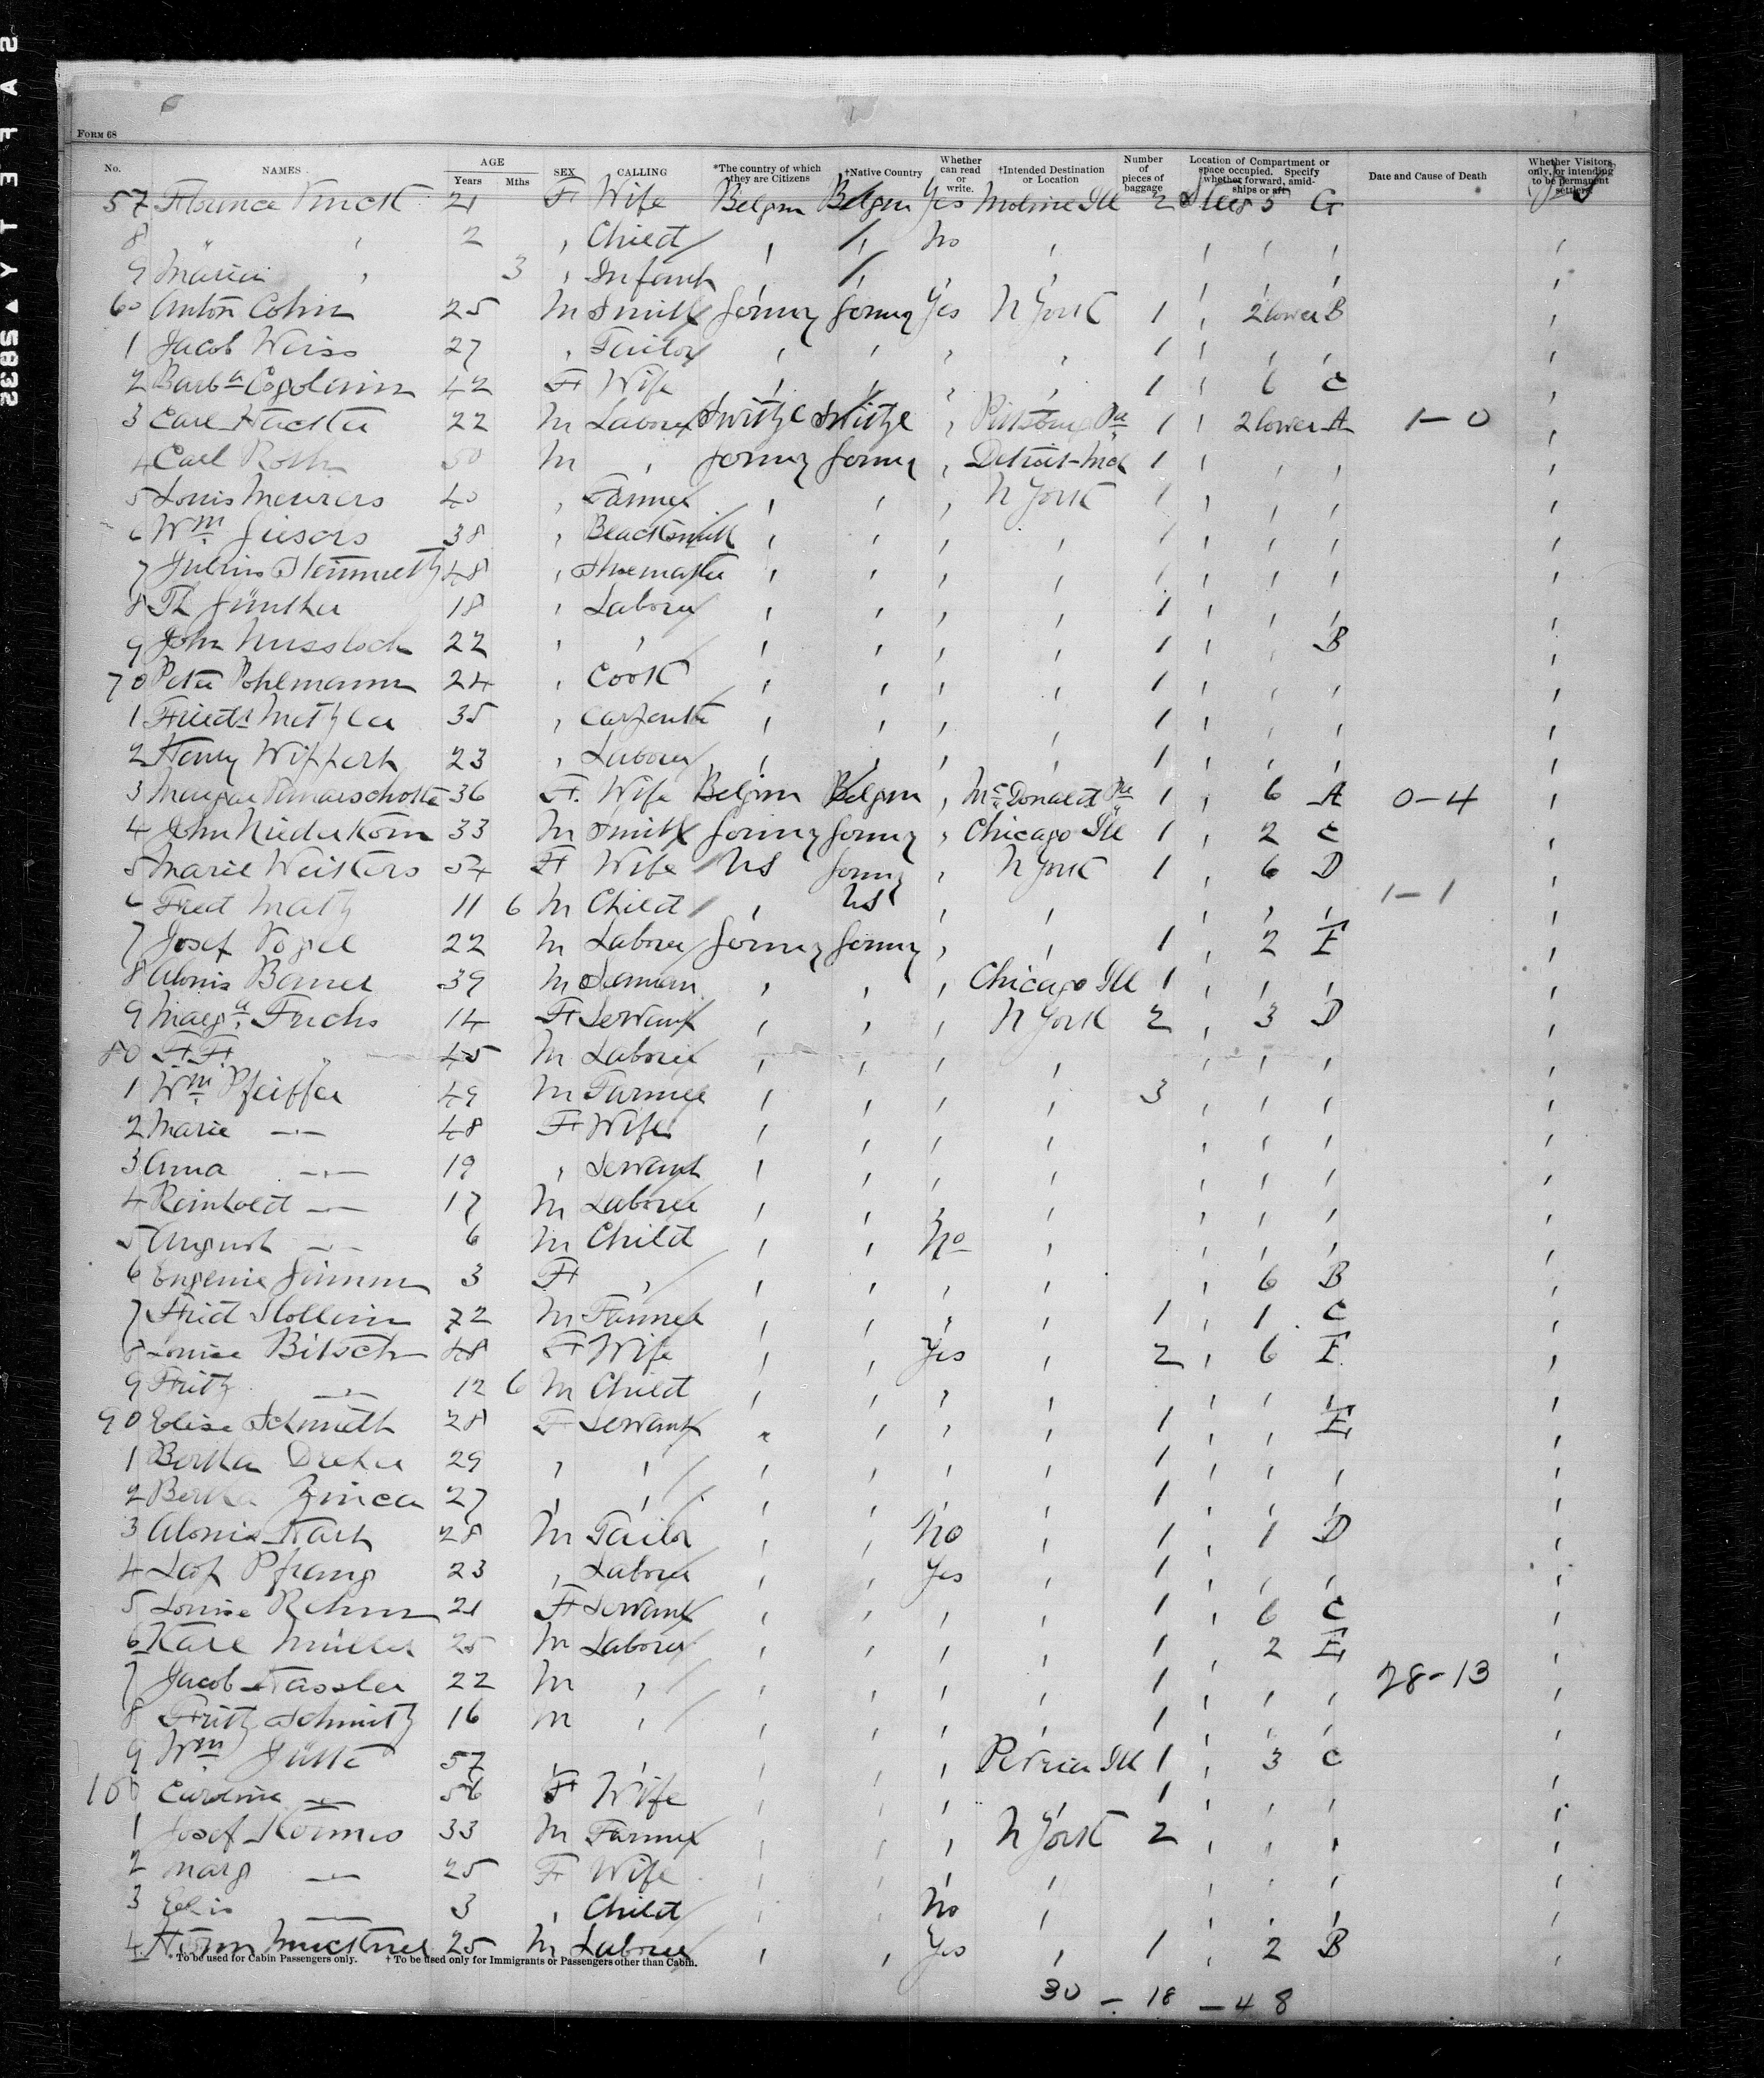 SAFETY ▲ 5832
FORM 68
No. NAMES. AGE Years Mths SEX CALLING *The country of which they are Citizens †Native Country Whether can read or write. †Intended Destination or Location Number of pieces of baggage Location of Compartment or space occupied. Specify whether forward, amidships or aft Date and Cause of Death Whether Visitors only, or intending to be permanent settlers.
57 21 F Wife Belgm Belgm Yes Moline Ill 2 5 G
8 " ' 2 ' Child ' ' No ' ' ' ' '
9 Maria ' 3 ' Infant ' ' ' ' ' ' ' '
60 Anton Cohn 25 M Smith Germy Germy Yes N York 1 ' 2 lower B '
1 Jacob Weiss 27 ' Tailor ' ' ' ' 1 ' ' ' '
2 42 F Wife ' ' ' ' 1 ' 6 C '
3 Carl 22 M Laborer Switze Switze ' Pittsburg Pa 1 ' 2 lower A 1-0 '
4 Carl Roth 50 M ' Germy Germy ' Detroit Mch 1 ' ' ' '
5 Louis Meurers 40 ' Farmer ' ' ' N York 1 ' ' ' '
6 Wm 38 ' Blacksmith ' ' ' ' 1 ' ' ' '
7 Julius 48 ' Shoemaker ' ' ' ' 1 ' ' ' '
8 Th Günther 18 ' Laborer ' ' ' ' 1 ' ' ' '
9 John Nussloch 22 ' ' ' ' ' ' 1 ' ' B '
70 Peter Pohlmann 24 ' Cook ' ' ' ' 1 ' ' ' '
1 Friedr Metzler 35 ' Carpenter ' ' ' ' 1 ' ' ' '
2 Henry Wippert 23 ' Laborer ' ' ' ' 1 ' ' ' '
3 36 F. Wife Belgm Belgm ' McDonald Pa 1 ' 6 A 0-4 '
4 John Niederkorn 33 M Smith Germy Germy ' Chicago Ill 1 ' 2 C '
5 Marie 54 F Wife US Germy ' N York 1 ' 6 D '
6 Fred Matz 11 6 M Child ' US ' ' ' ' ' 1-1 '
7 Josef Vogel 22 M Laborer Germy Germy ' ' 1 ' 2 E '
8 Alonis 39 M Seaman ' ' ' Chicago Ill 1 ' ' ' '
9 Marga Fuchs 14 F Servant ' ' ' N York 2 ' 3 D '
80 " 45 M Laborer ' ' ' ' ' ' ' '
1 Wm Pfeiffer 49 M Farmer ' ' ' ' 3 ' ' ' '
2 Marie —"— 48 F Wife ' ' ' ' ' ' ' '
3 Anna —"— 19 ' Servant ' ' ' ' ' ' ' '
4 Reinhold —"— 17 M Laborer ' ' ' ' ' ' ' '
5 August —"— 6 M Child ' ' No ' ' ' ' '
6 Eugenie 3 F ' ' ' ' ' ' 6 B '
7 72 M Farmer ' ' ' ' 1 ' 1 C '
8 Louise Bitsch 48 F Wife ' ' Yes ' 2 ' 6 E '
9 Fritz —"— 12 6 M Child ' ' ' ' ' ' ' '
90 Elise Schmidt 28 F Servant " ' ' ' 1 ' ' E '
1 Bertha Dreher 29 ' ' ' ' ' ' 1 ' ' ' '
2 Bertha 27 ' ' ' ' ' ' 1 ' ' ' '
3 Alonis 28 M Tailor ' ' No ' 1 ' 1 D '
4 Pfrang 23 ' Laborer ' ' Yes ' 1 ' ' ' '
5 Louise Rehm 21 F Servant ' ' ' ' 1 ' 6 C '
6 Karl Müller 25 M Laborer ' ' ' ' 1 ' 2 E '
7 Jacob Kassler 22 M ' ' ' ' ' 1 ' ' ' 28-13 '
8 Fritz Schmitz 16 M ' ' ' ' ' 1 ' ' ' '
9 Wm Jütte 57 ' ' ' ' ' Peoria Ill 1 ' 3 C '
100 Caroline —"— 56 F Wife ' ' ' ' 1 ' ' ' '
1 Josef 33 M Farmer ' ' ' N York 2 ' ' ' '
2 Marg —"— 25 F Wife ' ' ' ' ' ' ' '
3 Elis — 3 ' Child ' ' No ' ' ' ' '
4 Herm 25 M Laborer ' ' Yes ' 1 ' 2 B '
* To be used for Cabin Passengers only. † To be used only for Immigrants or Passengers other than Cabin.
30 - 18 - 48